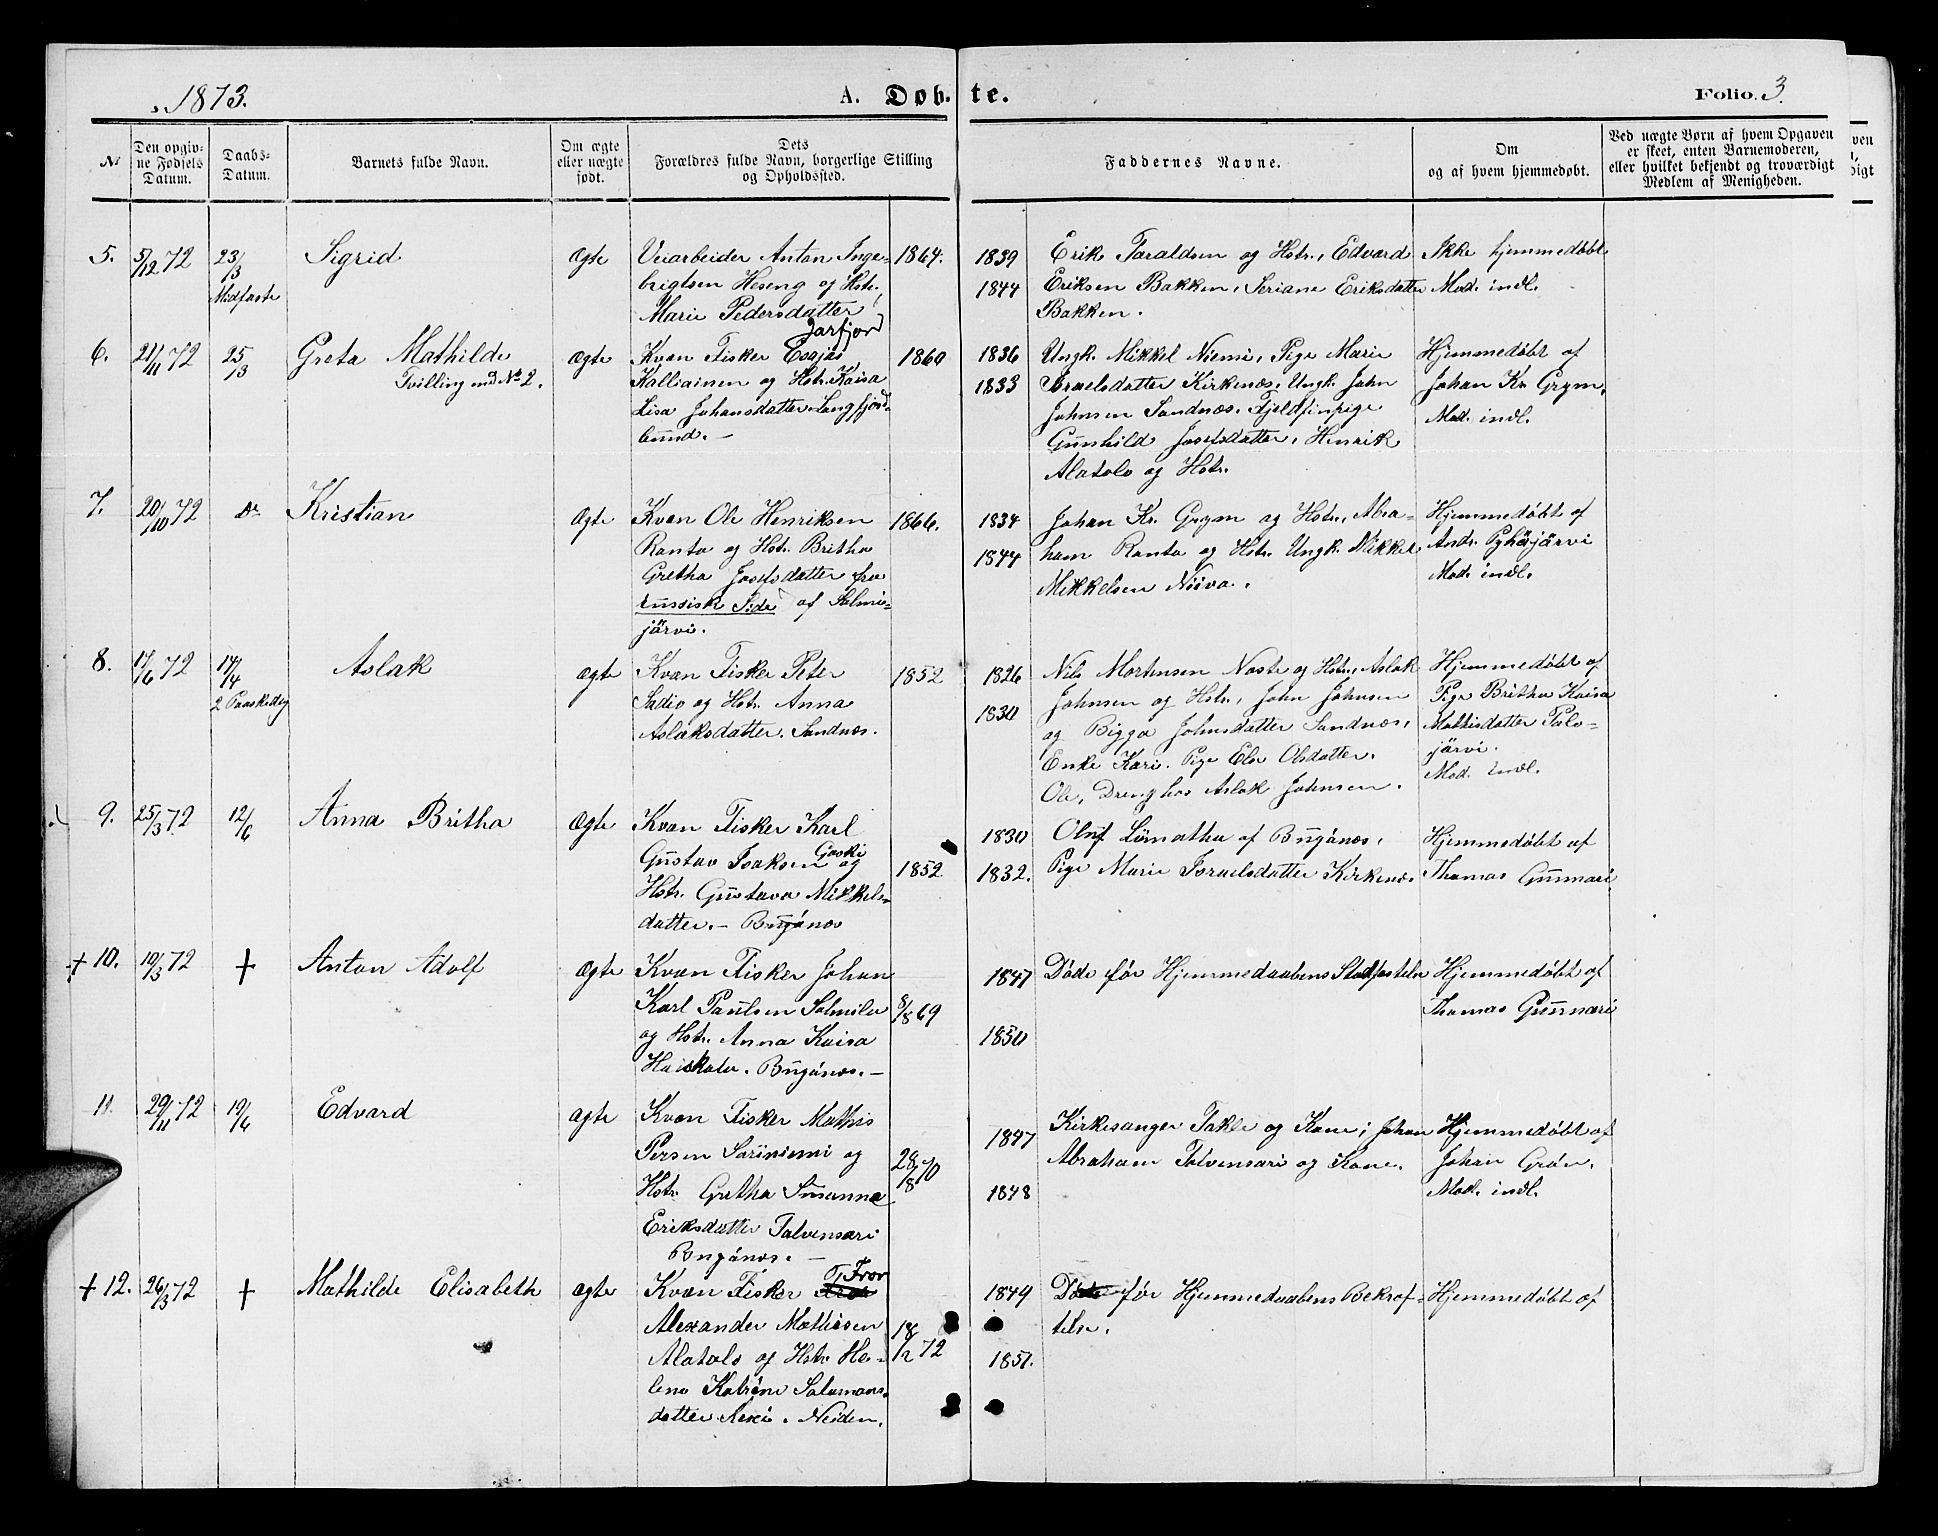 1873.
A. Døb- te.
Folio. 3.
№
Den opgiv-
ne Fødsels
Datum.
Daabs-
Datum.
Barnets fulde Navn.
Om ægte
eller uægte
født.
Dets
Forældres fulde Navn, borgerlige Stilling
og Opholdssted.
Faddernes Navne.
Om
og af hvem hjemmedøbt.
Ved uægte Børn af hvem Opgaven
er skeet, enten Barnemoderen,
eller hvilket bekjendt og troværdigt
Medlem af Menigheden.
5. 5/12 72 23/3 Midfaste
Sigrid
Ægte
Veiarbeider Anton Inge-
brigtsen Heseng og Hstr.
Marie Pedersdatter
Jarfjord
1864.
1839
1844
Erik Taraldsen og Hstr., Edvard
Eriksen Bakken, Seriane Eriksdatter
Bakken.
Ikke hjemmedøbt
Mod. indl.
6. 21/11 72 25/3
Greta Mathilde
Tvilling med № 2.
Ægte
Kvæn Fisker Esajas
Kalliainen og Hstr. Kaisa
Lisa Johansdatter. Langfjord-
bund. –
1860
1836
1833
Ungk. Mikkel Niemi, Pige Marie
Israelsdatter Kirkenæs, Ungk. John
Johnsen Sandnæs. Fjeldfinpige
Gunhild Josefsdatter, Henrik
Alatalo og Hstr.
Hjemmedøbt af
Johan Kr. Grym.
Mod. indl.
7. 20/10 72 Do
Kristian
Ægte
Kvæn Ole Henriksen
Ranta og Hstr. Britha
Gretha Josefsdatter fra
russisk Side af Salmi-
järvi.
1866.
1834
1844
Johan Kr. Grym og Hstr., Abra-
ham Ranta og Hstr. Ungk. Mikkel
Mikkelsen Niiva.
Hjemmedøbt af
Andr. Pyhäjärvi
Mod. indl.
8. 17/6 72 14/4 2 Paaskedag
Aslak
Ægte
Kvæn Fisker Peter
Sadio og Hstr. Anna
Aslaksdatter. Sandnæs.
1852
1826
1830
Nils Mortensen Noste og Hstr., Aslak
Johnsen og Hstr., John Johnsen
og Bigga Johnsdatter Sandnæs,
Enke Kari. Pige Else Olsdatter.
Ole, Dreng hos Aslak Johnsen.
Hjemmedøbt af
Pige Britha Kaisa
Mathisdatter Palo-
järvi.
Mod. indl.
9. 25/3 72 12/6
Anna Britha
Ægte
Kvæn Fisker Karl
Gustav Isaksen Gaski og
Hstr. Gustava Mikkels-
datter. – Bugönæs
1852
1830
1832.
Oluf Lumatha af Bugönæs,
Pige Marie Israelsdatter Kirkenæs.
Hjemmedøbt af
Thomas Gunnari
+ 10. 19/3 72 +
Anton Adolf
Ægte
Kvæn Fisker Johan
Karl Paulsen Salmila
og Hstr. Anna Kaisa
Haiskala. Bugönæs. –
8/8 69
1847
1850
Døde før Hjemmedaabens Stadfæstelse
Hjemmedøbt af
Thomas Gunnari
11. 29/11 72 19/6
Edvard
Ægte
Kvæn Fisker Mathis
Persen Sariniemi og
Hstr. Gretha Susanna
Eriksdatter Talvensari
Bugönæs. –
28/8 70
1847
1848
Kirkesanger Takle og Kone; Johan
Abraham Talvensari og Kone.
Hjemmedøbt af
Johan Grön.
Mod. indl.
+ 12. 26/3 72 +
Mathilde Elisabeth
Ægte
Kvæn Fisker
Alexander Mathisen
Alatalo og Hstr. He-
lena Katrine Salamons-
datter. Neiden.
1849
1851.
Døde før Hjemmedaabens Bekræf-
telse.
Hjemmedøbt af